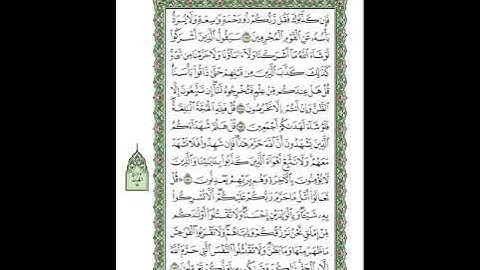 فَإِن كَذَّبُوكَ فَقُل رَّبُّكُمْ ذُو رَحْمَةٍ وَاسِعَةٍ وَلَا يُرَدُّ
بَأْسُهُ عَنِ الْقَوْمِ الْمُجْرِمِينَ سَيَقُولُ الَّذِينَ أَشْرَكُوا
لَوْ شَاءَ اللَّهُ مَا أَشْرَكْنَا وَلَا آبَاؤُنَا وَلَا حَرَّمْنَا مِن شَيْءٍ
كَذَلِكَ كَذَّبَ الَّذِينَ مِن قَبْلِهِمْ حَتَّى ذَاقُوا بَأْسَنَا
قُلْ هَلْ عِندَكُم مِّنْ عِلْمٍ فَتُخْرِجُوهُ لَنَا إِن تَتَّبِعُونَ إِلَّا
الظَّنَّ وَإِنْ أَنتُمْ إِلَّا تَخْرُصُونَ قُلْ فَلِلَّهِ الْحُجَّةُ الْبَالِغَةُ
فَلَوْ شَاءَ لَهَدَاكُمْ أَجْمَعِينَ قُلْ هَلُمَّ شُهَدَاءَكُمُ
الَّذِينَ يَشْهَدُونَ أَنَّ اللَّهَ حَرَّمَ هَذَا فَإِن شَهِدُوا فَلَا تَشْهَدْ
مَعَهُمْ وَلَا تَتَّبِعْ أَهْوَاءَ الَّذِينَ كَذَّبُوا بِآيَاتِنَا وَالَّذِينَ
لَا يُؤْمِنُونَ بِالْآخِرَةِ وَهُم بِرَبِّهِمْ يَعْدِلُونَ قُلْ
تَعَالَوْا أَتْلُ مَا حَرَّمَ رَبُّكُمْ عَلَيْكُمْ أَلَّا تُشْرِكُوا بِهِ
شَيْئًا وَبِالْوَالِدَيْنِ إِحْسَانًا وَلَا تَقْتُلُوا أَوْلَادَكُم
مِّنْ إِمْلَاقٍ نَّحْنُ نَرْزُقُكُمْ وَإِيَّاهُمْ وَلَا تَقْرَبُوا الْفَوَاحِشَ
مَا ظَهَرَ مِنْهَا وَمَا بَطَنَ وَلَا تَقْتُلُوا النَّفْسَ الَّتِي حَرَّمَ اللَّهُ
إِلَّا بِالْحَقِّ ذَلِكُمْ وَصَّاكُم بِهِ لَعَلَّكُمْ تَعْقِلُونَ